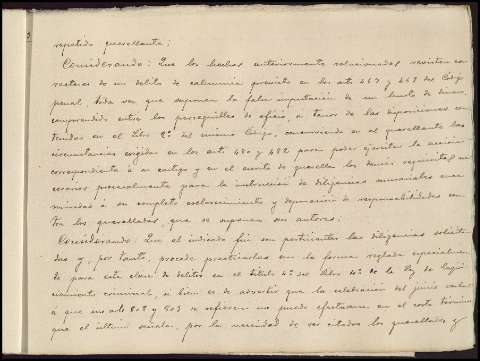 repetido querellante;
Considerando: Que los hechos anteriormente relacionados revisten ca-
racteres de un delito de calumnia previsto en los arts 467 y 468 del Código
penal, toda vez que suponen la falsa imputación de un hurto de dinero,
comprendido entre los perseguibles de oficio, a tenor de las disposiciones con-
tenidas en el Libro 2º del mismo Código, concurriendo en el querellante las
circunstancias exigidas en los arts 480 y 482 para poder ejercitar la acción
correspondiente á su castigo y en el escrito de querella los demás requisitos ne-
cesarios procesalmente para la instrucción de diligencias sumariales enca-
minadas á su completo esclarecimiento y depuración de responsabilidades con-
tra los querellados, que se suponen sus autores;
Considerando: Que al indicado fin son pertinentes las diligencias solicita-
das y, por tanto, procede practicarlas en la forma reglada especialmen-
te para esta clase de delitos en el título 4º del libro 4º de la Ley de Enjui-
ciamiento criminal, si bien es de advertir que la celebración del juicio verbal
á que sus arts 808 y 809 se refieren no puede efectuarse en el corto término
que el último señala, por la necesidad de ser citados los querellados y